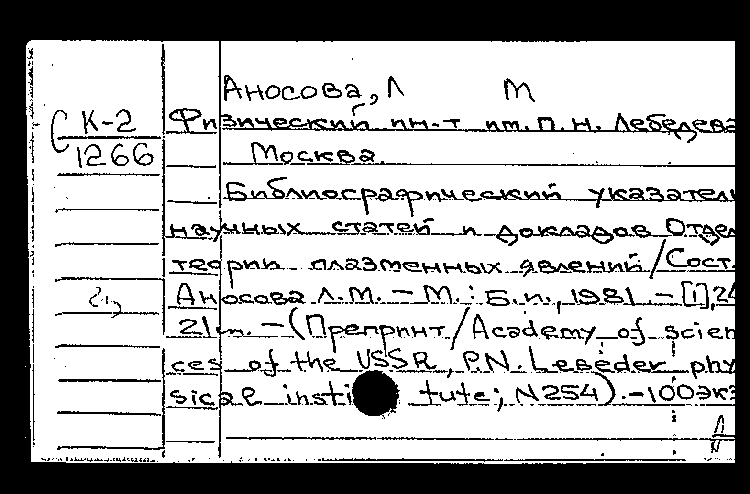 Аносова, Л М
К-2
1266
Физический ин-т им. П. Н. Лебедева
Москва.
Библиографический указатель
научных статей и докладов Отдел
теории плазменных явлений / Сост.
Аносова Л.М. – М. : Б.и., 1981 – [1], 24
21см. – (Препринт / Academy of scien
ces of the USSR, P.N. Lebeder phy
sical insti tute; N254). – 100экз